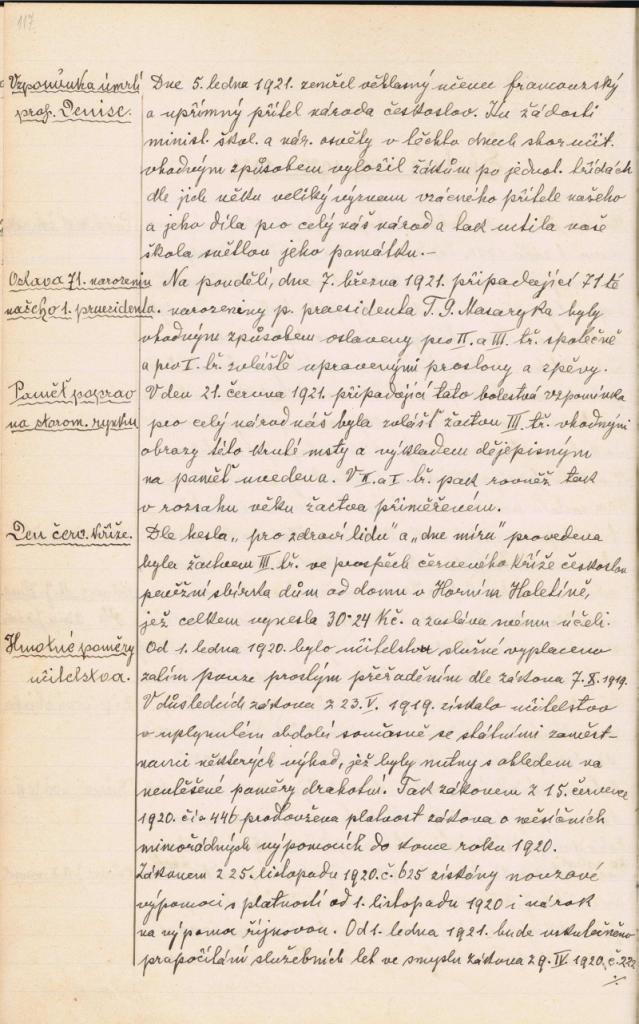 117.
Vzpomínka úmrtí
prof. Denise.
Dne 5. ledna 1921. zemřel věhlasný učenec francouzský
a upřímný přítel národa českoslov. Ku žádosti
minist. škol. a nár. osvěty v těchto dnech sbor učit.
vhodným způsobem vyložil žákům po jednot. třídách
dle jich věku veliký význam vzácného přítele našeho
a jeho díla pro celý náš národ a tak uctila naše
škola světlou jeho památku.–
Oslava 71. narozenin
našeho 1. praesidenta.
Na pondělí, dne 7. března 1921. připadající 71té
narozeniny p. praesidenta T. G. Masaryka byly
vhodným způsobem oslaveny pro II. a III. tř. společně
a pro I. tř. zvláště upravenými proslovy a zpěvy.
Paměť poprav
na starom. rynku
V den 21. června 1921. připadající tato bolestná vzpomínka
pro celý národ náš byla zvlášť žactvu III. tř. vhodnými
obrazy této kruté msty a výkladem dějepisným
na paměť uvedena. V II. a I. tř. pak rovněž tak
v rozsahu věku žactva přiměřeném.
Den červ. kříže.
Dle hesla „pro zdraví lidu" a „dne míru" provedena
byla žactvem III. tř. ve prospěch červeného kříže českoslov.
peněžní sbírka dům od domu v Horním Holetíně,
jež celkem vynesla 30·24 Kč. a zaslána svému účeli.
Hmotné poměry
učitelstva.
Od 1. ledna 1920. bylo učitelstvu služné vyplaceno
zatím pouze prostým přeřaděním dle zákona 7. X. 1919.
V důsledcích zákona z 23. V. 1919. získalo učitelstvo
v uplynulém období současně se státními zaměst-
nanci některých výhod, jež byly nutny s ohledem na
neutěšené poměry drahotní. Tak zákonem z 15. července
1920. čís. 446 prodloužena platnost zákona o měsíčních
mimořádných výpomocích do konce roku 1920.
Zákonem z 25. listopadu 1920. č. 625 získány nouzové
výpomoci s platností od 1. listopadu 1920 i nárok
na výpomoc říjnovou. Od 1. ledna 1921. bude uskutečněno
propočítání služebních let ve smyslu zákona z 9. IV. 1920. č. 222
./.